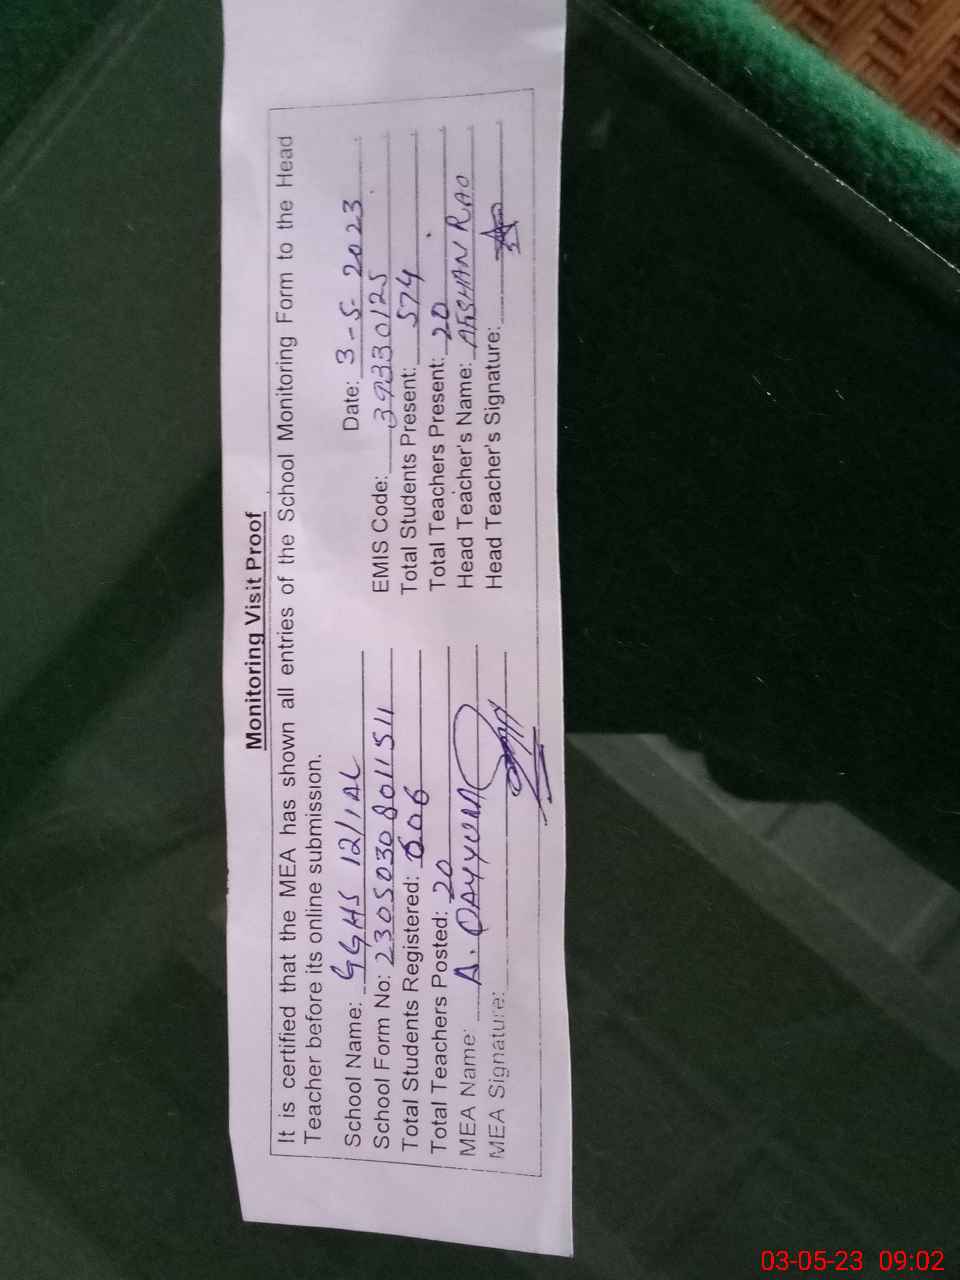 Monitoring Visit Proof
It is certified that the MEA has shown all entries of the School Monitoring Form to the Head
Teacher before its online submission.
School Name: GGHS 12/1AL Date: 3-5-2023
School Form No: 23050308011511 EMIS Code: 39330125
Total Students Registered: 606 Total Students Present: 574
Total Teachers Posted: 20 Total Teachers Present: 20
MEA Name: A. QAYYUM Head Teacher's Name: AFSHAN RAO
MEA Signature: Head Teacher's Signature:
03-05-23 09:02